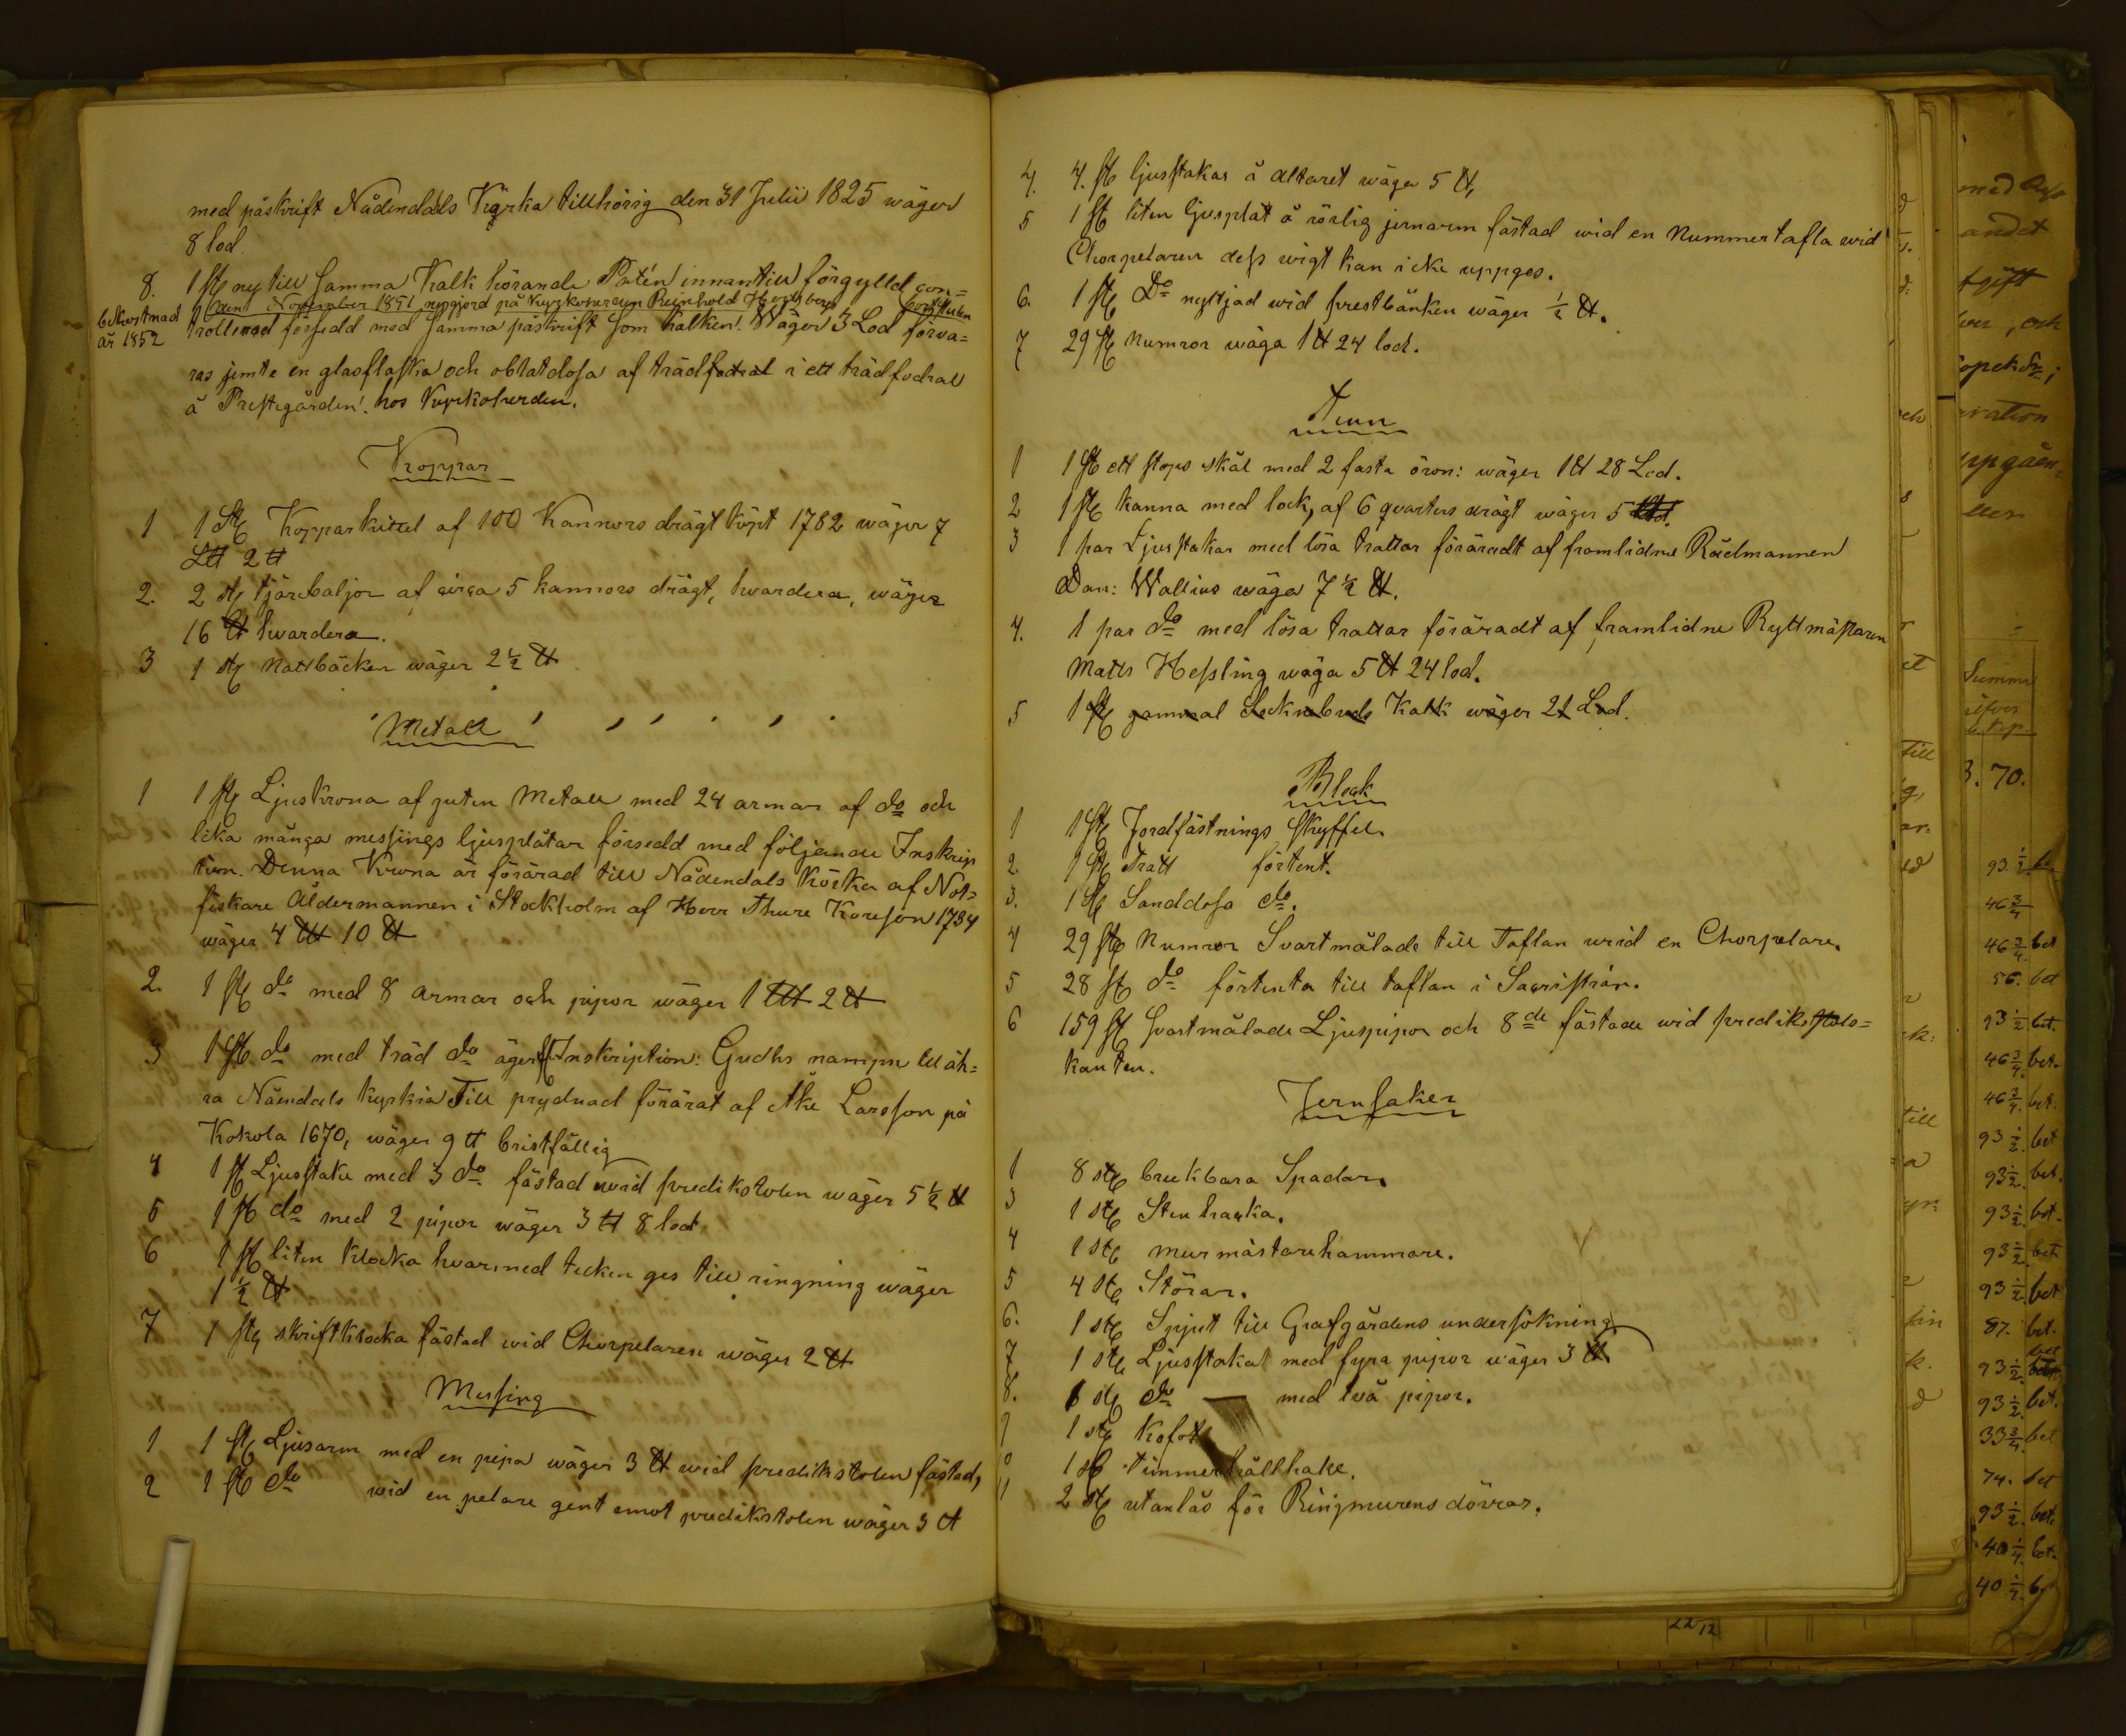 med påskrift Nådendals Kyrka tillhörig den 31 Julii 1825 wäger
8 lod
8. 1 st ny till samma Kalk hörande Patén innantill förgylld con=
bekostnad år 1852
den November 1851 uppgjord på Kyrkoherden Reinhold
trollerad försedd med samma påskrift som kalken. Wäger 3 Lod förva=
ras jemte en glasflaska och oblatdosa af träd i ett trädfodral
å Prestgården. hos Kyrkoherden.
Koppar
1 1 st Kopparkittel af 100 Kannors drägt köpt 1782 wäger 7
L℔ 2 ℔
2. 2 st tjärbaljor af cirka 5 kannors drägt, hvardera, wäger
16 ℔ hvardera.
3 1 st nattbäcken wäger 2 1/2 ℔
Metall
1 1 st Ljuskrona af guten Metall med 24 armar af do och
lika många messings ljusplåtar försedd med följande Inskrip
tion. Denna Krona är förärad till Nådendals Körka af Not=
fiskare Åldermannen i Stockholm af Herr Thure Koreson 1734
wäger 4 L℔ 10 ℔
2. 1 st do med 8 armar och pipor wäger 1 L℔ 2 ℔
3 1 st do med träd do äger Inskription: Gudhs nampn till äh=
ra Nåendals kyrkia Till prydnad förärat af Åke Larsson på
Kokola 1670, wäger 9 ℔ bristfällig
4 1 st Ljusstake med 3 do fästad wid predikstolen wäger 5 1/2 ℔
5 1 st do med 2 pipor wäger 3 ℔ 8 lod
6 1 st liten klocka hvarmed tecken ges till ringning wäger
1 1/2 ℔
7 1 st skriftklocka fästad wid Chorpelaren wäger 2 ℔
Messing
1 1 st Ljusarm med en pipa wäger 3 ℔ wid predikstolen fästad,
2 1 st do wid en pelare gent emot predikstolen wäger 3 ℔
4. 4. st ljusstakar å altaret wäga 5 ℔,
5 1 st liten ljusplåt å rörlig jernarm fästad wid en Nummertafla wid
Chorpelaren dess wigt kan icke uppges.
6. 1 st Do nyttjad wid prestbänken wäger 1/2 ℔.
7 29 st Numror wäga 1 ℔ 24 lod.
Tenn
1 1 st ett stops skål med 2 fasta öron: wäger 1 ℔ 28 Lod.
2 1 st kanna med lock, af 6 qvarters drägt wäger 5
3 1 par Ljusstakar med lösa trattar föräradt af framlidne Rådmannen
Dan: Wallius wäga 7 1/2 ℔.
4. 1 par do med lösa trattar föräradt af framlidne Ryttmästaren
Matts Hessling wäga 5 ℔ 24 lod.
5 1 st gammal Sockenbuds Kalk wäger 21 Lod.
Bleck
1 1 st Jordfästnings skyffel.
2. 1 st Tratt förtent.
3. 1 st Sanddosa do.
4 29 st Numror Svartmålade till Taflan wid en Chorpelare.
5 28 st do förtenta till taflan i Sacristian.
6 159 st svartmålade Ljuspipor och 8 de fästade wid predikstols=
kanten.
Jernsaker
1 8 st brukbara Spadar.
3 1 st Sten hacka.
4 1 st murmästarehammare.
5 4 st Störar.
6. 1 st Spjut till Grafgårdens undersökning
7 1 st Ljusstakar med fyra pipor wäger 3 ℔
8. 6 st do med två pipor.
9 1 st Kofot
1 st timmerhållhake.
11 2 st utanlås för Ringmurens dörrar.
med
andet
och
Summa
3. 70.
93 1/2
46 3/4
46 3/4 bet
56. bet
93 1/2 bet.
46 3/4 bet.
46 3/4. bet.
93 1/2 bet
93 1/2. bet.
93 1/2. bet.
93 1/2. bet
93 1/2. bet
87. bet.
93 1/2. bet
93 1/2. bet.
33 3/4. bet
74. bet
93 1/2. bet.
40 1/4. bet.
40 1/4.